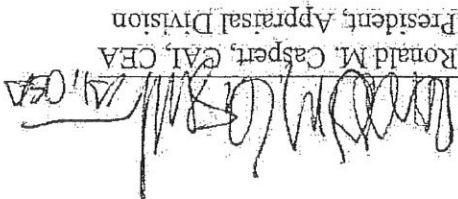 AI, CEA
Ronald M. Caspert, CAI, CEA
President, Appraisal Division